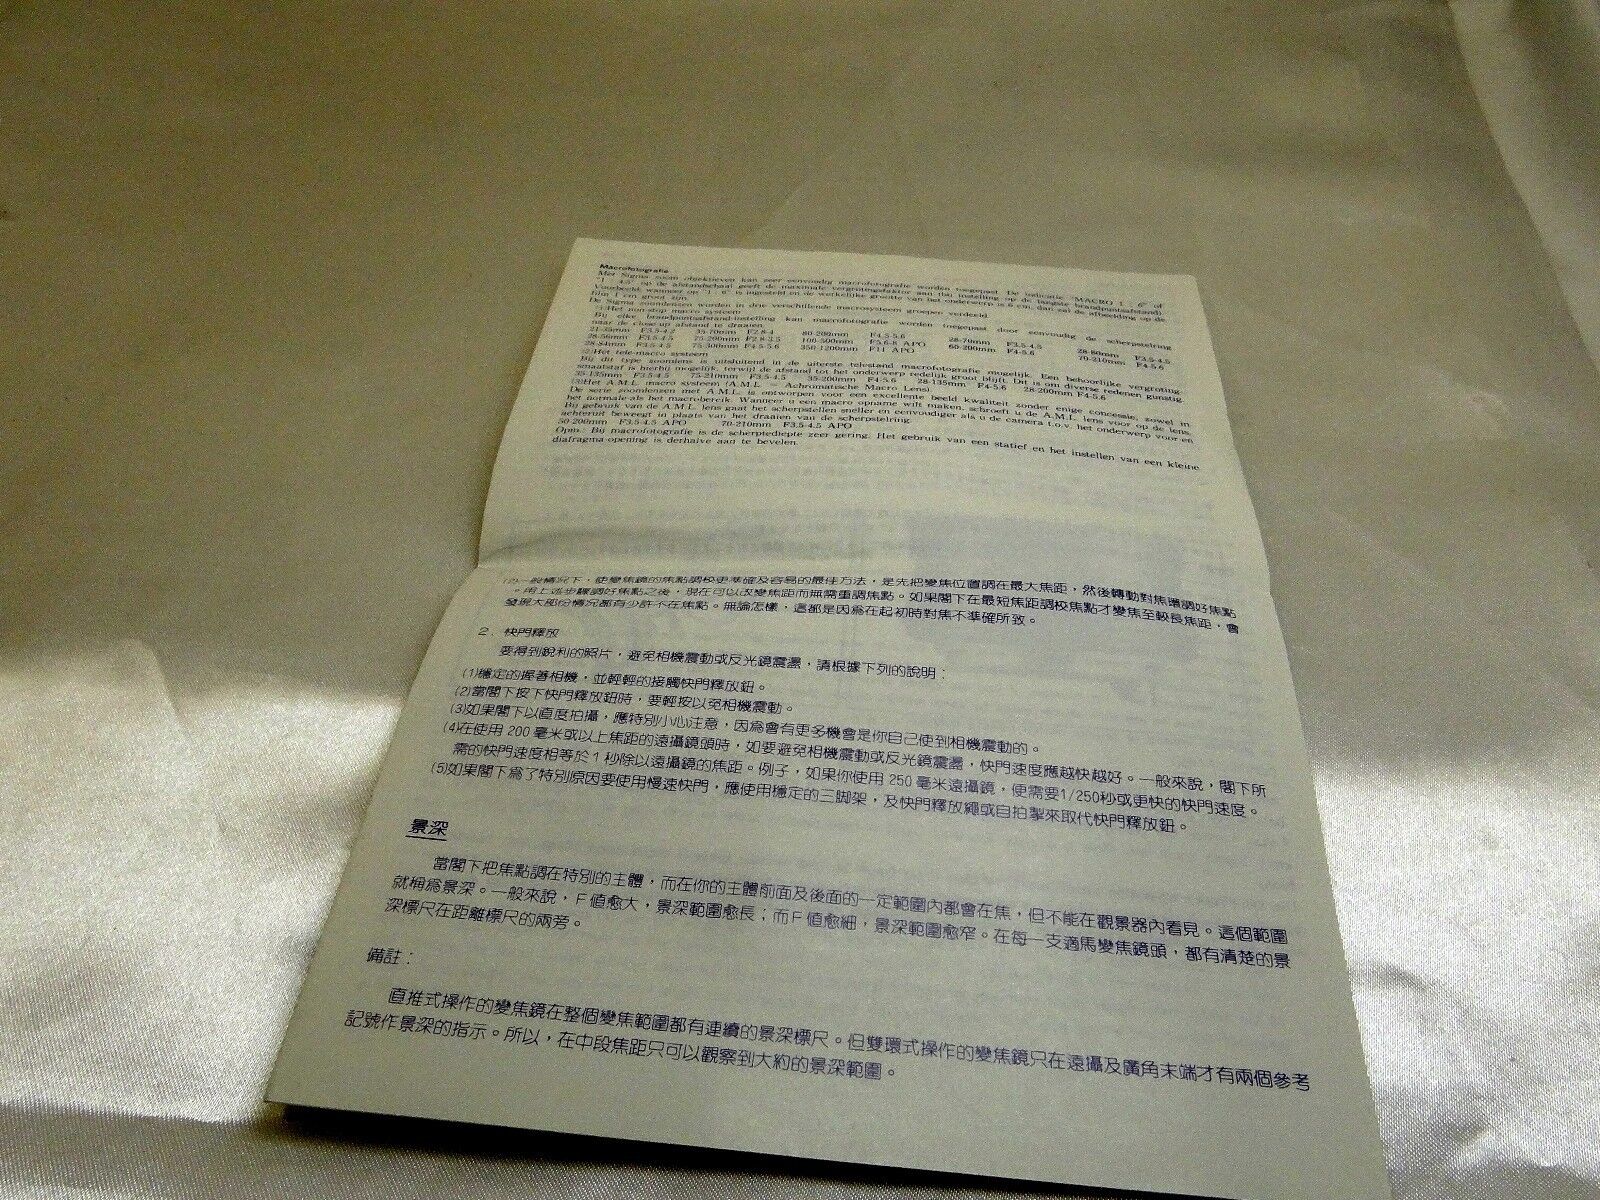 Macrofotografie
Met Sigma zoom objektieven kan zeer eenvoudig macrofotografie worden toegepast. De indicatie "MACRO 1 : 6" of
"1 : 4.5" op de afstandschaal geeft de maximale vergrotingsfaktor aan (bij instelling op de langste brandpuntsafstand).
Voorbeeld: wanneer op "1 : 6" is ingesteld en de werkelijke grootte van het onderwerp is 6 cm, dan zal de afbeelding op de
film 1 cm groot zijn.
De Sigma zoomlenzen worden in drie verschillende macrosysteem groepen verdeeld.
(1)Het non-stop macro systeem
Bij elke brandpuntsafstand-instelling kan macrofotografie worden toegepast door eenvoudig de scherpstelring
naar de close-up afstand te draaien.
21-35mm F3.5-4.2 35-70mm F2.8-4 80-200mm F4.5-5.6 28-70mm F3.5-4.5 28-80mm F3.5-4.5
28-50mm F3.5-4.5 75-200mm F2.8-3.5 100-500mm F5.6-8 APO 60-200mm F4-5.6 70-210mm F4-5.6
28-84mm F3.5-4.5 75-300mm F4.5-5.6 350-1200mm F11 APO
(2)Het tele-macro systeem
Bij dit type zoomlens is uitsluitend in de uiterste telestand macrofotografie mogelijk. Een behoorlijke vergroting-
smaatstaf is hierbij mogelijk, terwijl de afstand tot het onderwerp redelijk groot blijft. Dit is om diverse redenen gunstig.
35-135mm F3.5-4.5 75-210mm F3.5-4.5 35-200 F4-5.6 28-135mm F4-5.6 28-200mm F4-5.6
(3)Het A.M.L. macro systeem (A.M.L. = Achromatische Macro Lens)
De serie zoomlenzen met A.M.L. is ontworpen voor een excellente beeld kwaliteit zonder enige concessie, zowel in
het normale als het macrobereik. Wanneer u een macro opname wilt maken, schroeft u de A.M.L. lens voor op de lens.
Bij gebruik van de A.M.L. lens gaat het scherpstellen sneller en eenvoudiger als u de camera t.o.v. het onderwerp voor en
achteruit beweegt in plaats van het draaien van de scherpstelring.
50-200mm F3.5-4.5 APO 70-210mm F3.5-4.5 APO
Opm.: Bij macrofotografie is de scherptediepte zeer gering. Het gebruik van een statief en het instellen van een kleine
diafragma-opening is derhalve aan te bevelen.
(2)一般情況下，使變焦鏡的焦點調校更準確及容易的最佳方法，是先把變焦位置調在最大焦距，然後轉動對焦環調好焦點
。用上述步驟調好焦點之後，現在可以改變焦距而無需重調焦點。如果閣下在最短焦距調校焦點才變焦至較長焦距，會
發現大部份情況都有少許不在焦點。無論怎樣，這都是因爲在起初時對焦不準確所致。
2．快門釋放
要得到銳利的照片，避免相機震動或反光鏡震盪，請根據下列的說明：
(1)穩定的握著相機，並輕輕的接觸快門釋放鈕。
(2)當閣下按下快門釋放鈕時，要輕按以免相機震動。
(3)如果閣下以直度拍攝，應特別小心注意，因爲會有更多機會是你自己使到相機震動的。
(4)在使用 200 毫米或以上焦距的遠攝鏡頭時，如要避免相機震動或反光鏡震盪，快門速度應越快越好。一般來說，閣下所
需的快門速度相等於 1 秒除以遠攝鏡的焦距。例子，如果你使用 250 毫米遠攝鏡，便需要1/250秒或更快的快門速度。
(5)如果閣下爲了特別原因要使用慢速快門，應使用穩定的三脚架，及快門釋放繩或自拍掣來取代快門釋放鈕。
景深
當閣下把焦點調在特別的主體，而在你的主體前面及後面的一定範圍內都會在焦，但不能在觀景器內看見。這個範圍
就稱爲景深。一般來說，F 值愈大，景深範圍愈長；而 F 值愈細，景深範圍愈窄。在每一支適馬變焦鏡頭，都有清楚的景
深標尺在距離標尺的兩旁。
備註：
直推式操作的變焦鏡在整個變焦範圍都有連續的景深標尺。但雙環式操作的變焦鏡只在遠攝及廣角末端才有兩個參考
記號作景深的指示。所以，在中段焦距只可以觀察到大約的景深範圍。